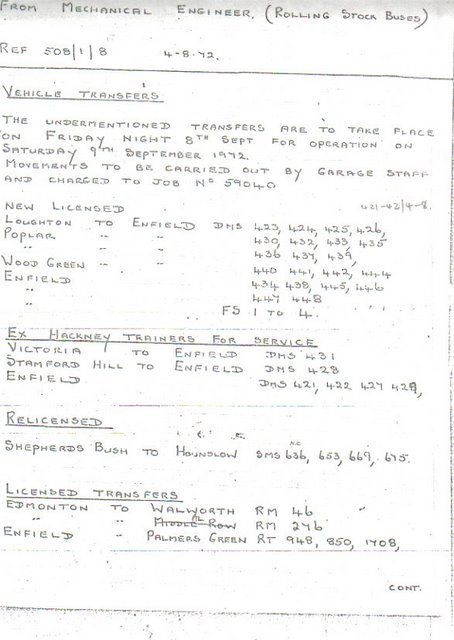 FROM MECHANICAL ENGINEER (ROLLING STOCK BUSES)
REF 508/1/8 4-8-72.
VEHICLE TRANSFERS
THE UNDERMENTIONED TRANSFERS ARE TO TAKE PLACE
ON FRIDAY NIGHT 8TH SEPT FOR OPERATION ON
SATURDAY 9TH SEPTEMBER 1972.
MOVEMENTS TO BE CARRIED OUT BY GARAGE STAFF
AND CHARGED TO JOB No 59040
421-42/4-8.
NEW LICENSED
LOUGHTON TO ENFIELD DMS 423, 424, 425, 426,
POPLAR " " 430, 432, 433, 435
" " " 436 437, 439,
WOOD GREEN " " 440 441, 442, 444
ENFIELD 434 438, 445, 446
" 447 448
" FS 1 TO 4.
EX HACKNEY TRAINERS FOR SERVICE
VICTORIA TO ENFIELD DMS 431
STAMFORD HILL TO ENFIELD DMS 428
ENFIELD DMS 421, 422 427 429,
RELICENSED
SHEPHERDS BUSH TO HOUNSLOW SMS 636, 653, 669, 675.
LICENSED TRANSFERS
EDMONTON TO WALWORTH RM 46
" " MIDDLE ROW AL RM 276
ENFIELD " PALMERS GREEN RT 948, 850, 1708,
CONT.